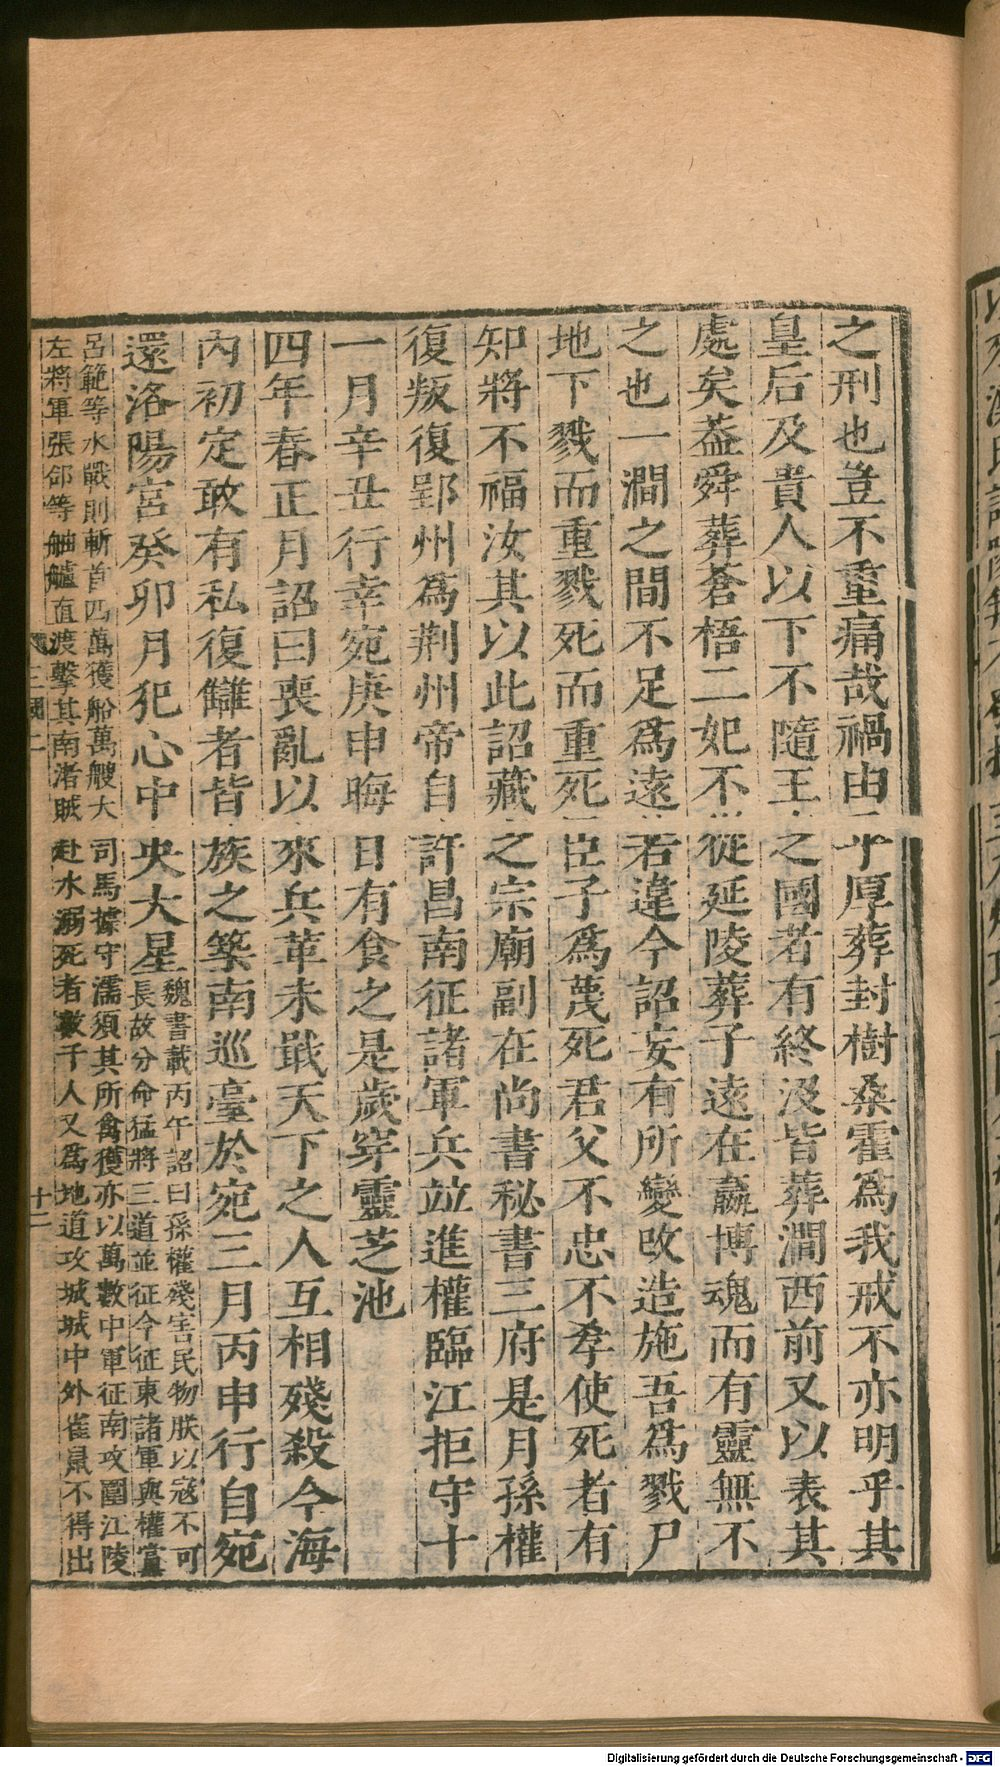 之刑也豈不重痛哉禍由乎厚葬封樹桑霍爲我戒不亦明乎其
皇后及貴人以下不隨王之國者有終没皆葬澗西前又以表其
處矣葢舜葬蒼梧二妃不從延陵葬子遠在嬴博魂而有靈無不
之也一澗之間不足爲遠若違今詔妄有所變改造施吾爲戮尸
地下戮而重戮死而重死臣子爲蔑死君父不忠不孝使死者有
知將不福汝其以此詔藏之宗廟副在尚書秘書三府是月孫權
復叛復郢州爲荆州帝自許昌南征諸軍兵竝進權臨江拒守十
一月辛丑行幸宛庚申晦日有食之是歲穿靈芝池
四年春正月詔曰喪亂以來兵革未戢天下之人互相殘殺今海
內初定敢有私復讎者皆族之築南巡臺於宛三月丙申行自宛
還洛陽宮癸卯月犯心中央大星魏書載丙午詔曰孫權殘害民物朕以寇不可
長故分命猛將三道並征今征東諸軍與權黨
呂範等水戰則斬首四萬獲船萬艘大司馬據守濡須其所禽獲亦以萬數中軍征南攻圍江陵
左將軍張郃等舳艫直渡擊其南渚賊赴水溺死者數千人又爲地道攻城城中外雀鼠不得出
三國二
十二
Digitalisierung gefördert durch die Deutsche Forschungsgemeinschaft - DFG